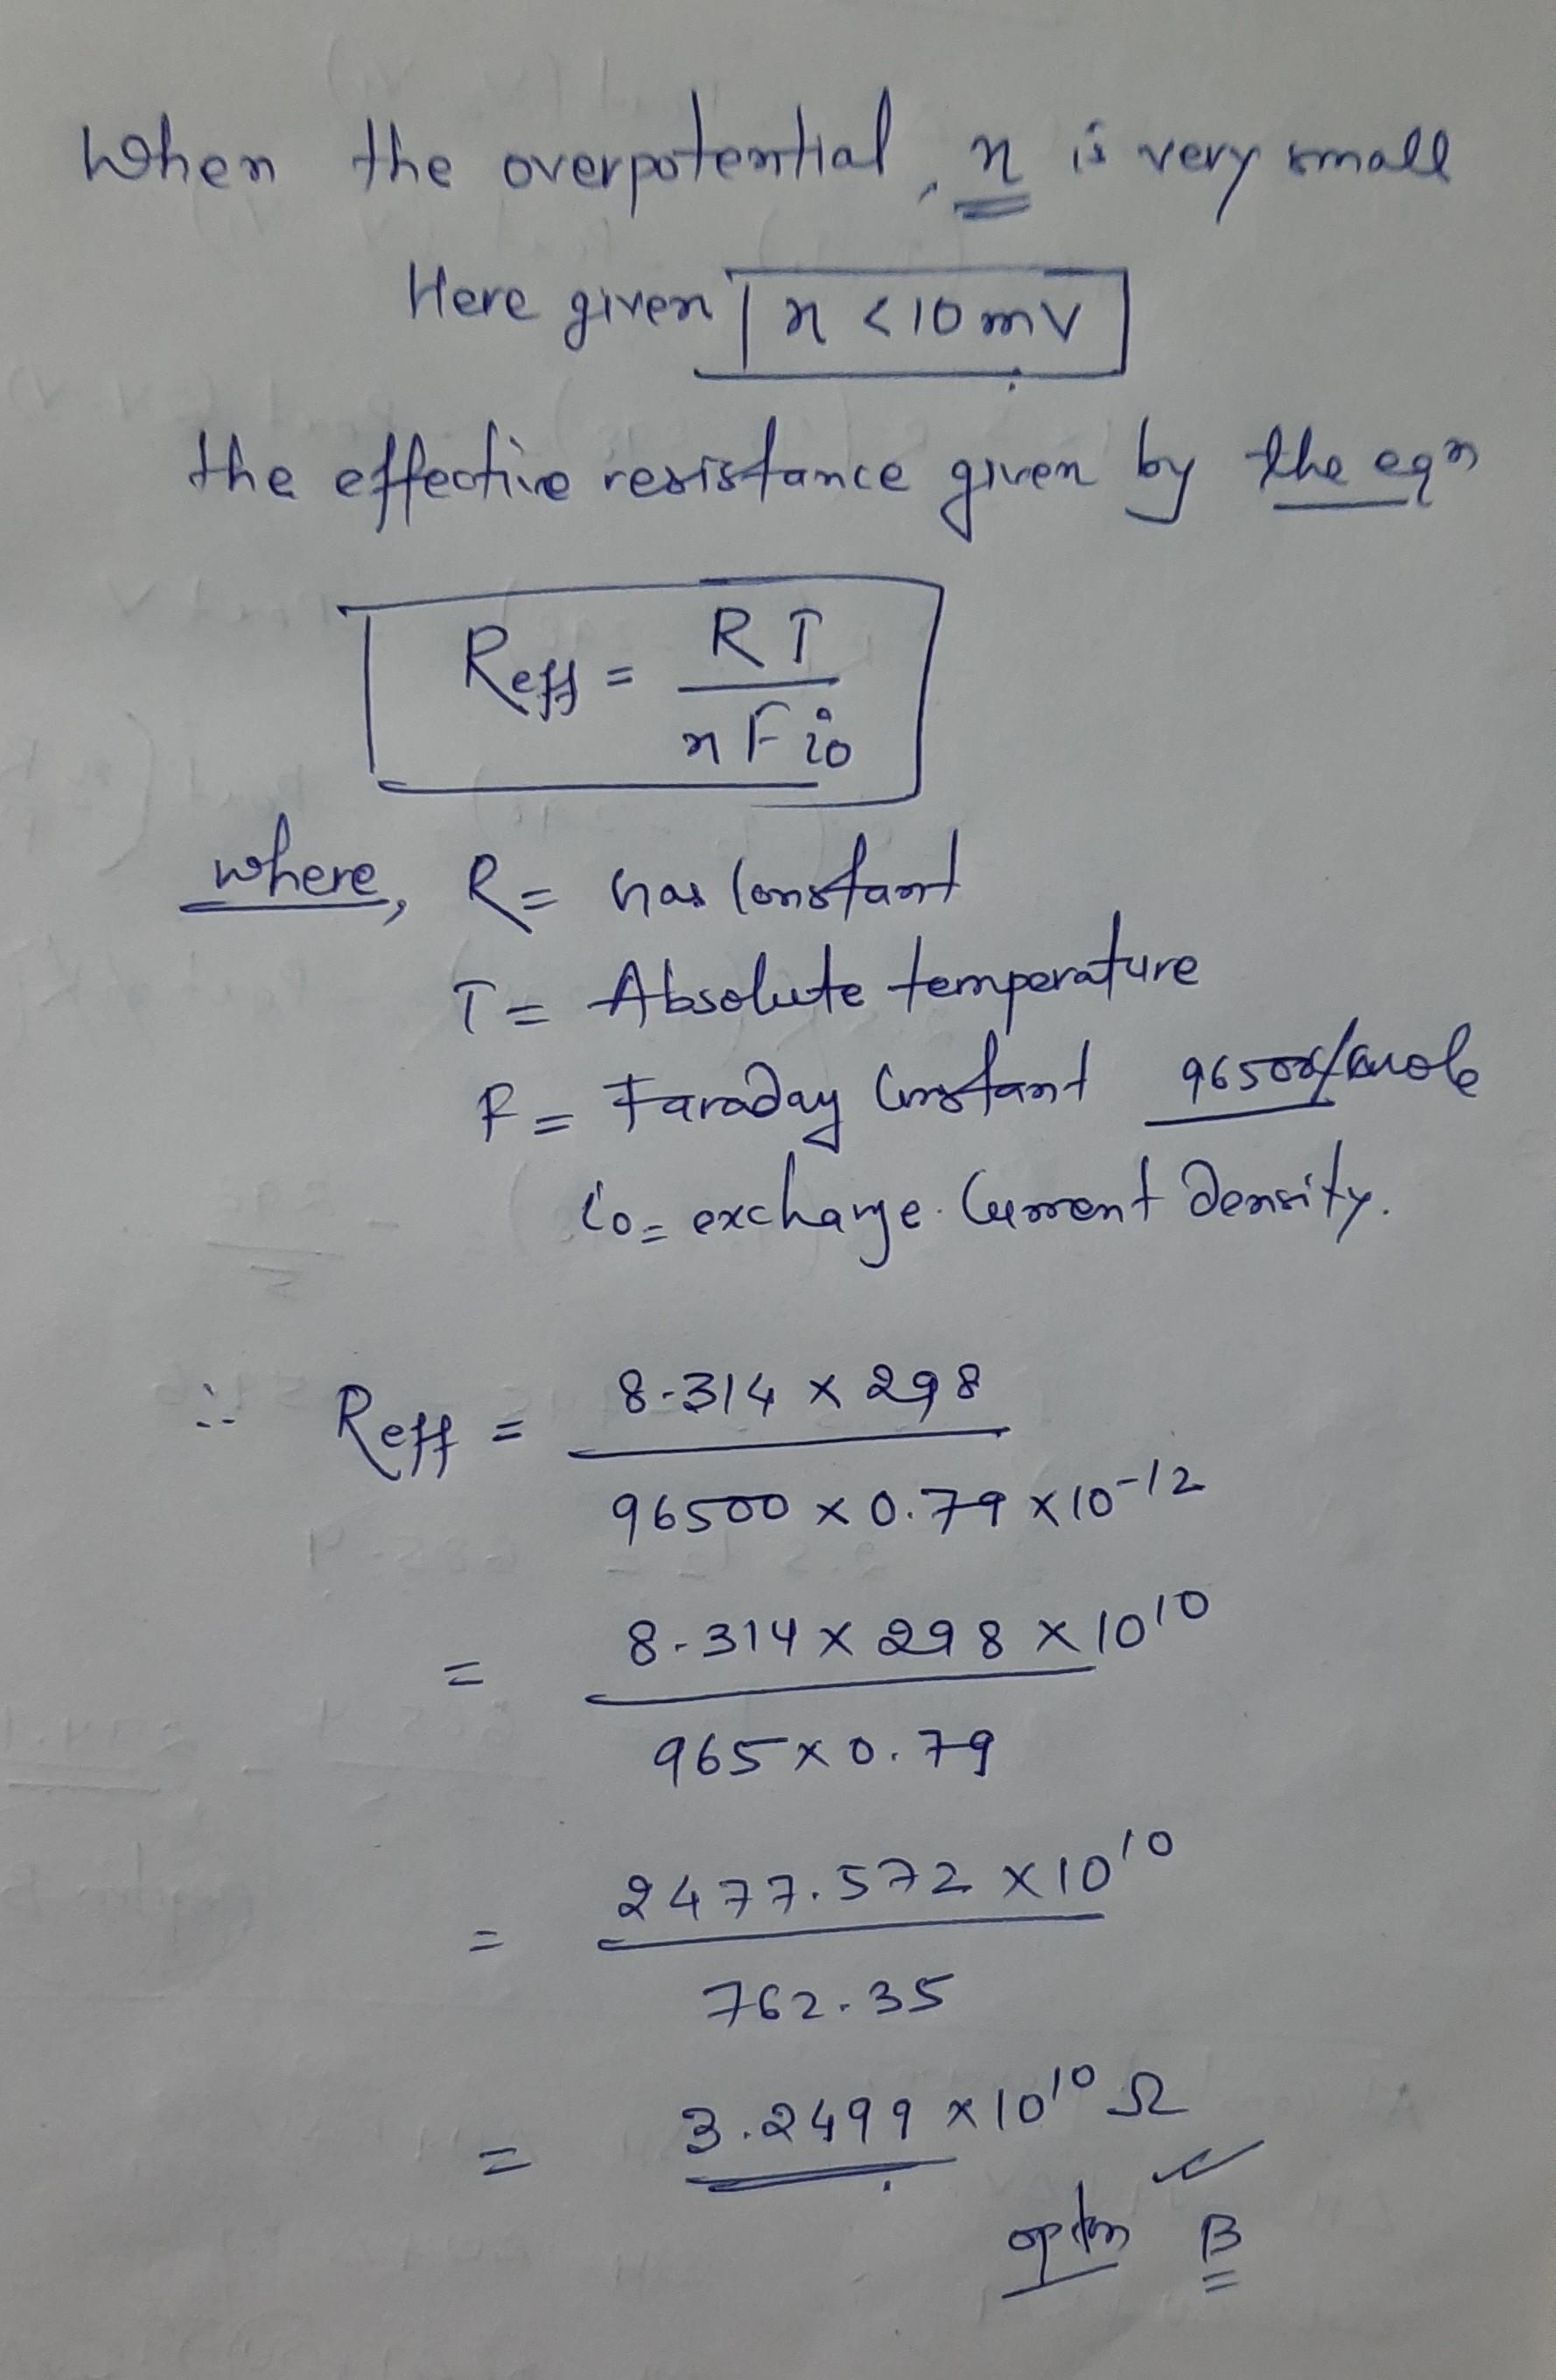 When the overpotential, n is very small
Here given n < 10 mV
the effective resistance given by the eqn
Reff = RT / nFio
where, R = Gas Constant
T = Absolute temperature
F = Faraday Constant 96500
io = exchange current Density.
∴ Reff = 8.314 x 298 / 96500 x 0.79 x 10^-12
= 8.314 x 298 x 10^10 / 965 x 0.79
= 2477.572 x 10^10 / 762.35
= 3.2499 x 10^10 Ω
option B